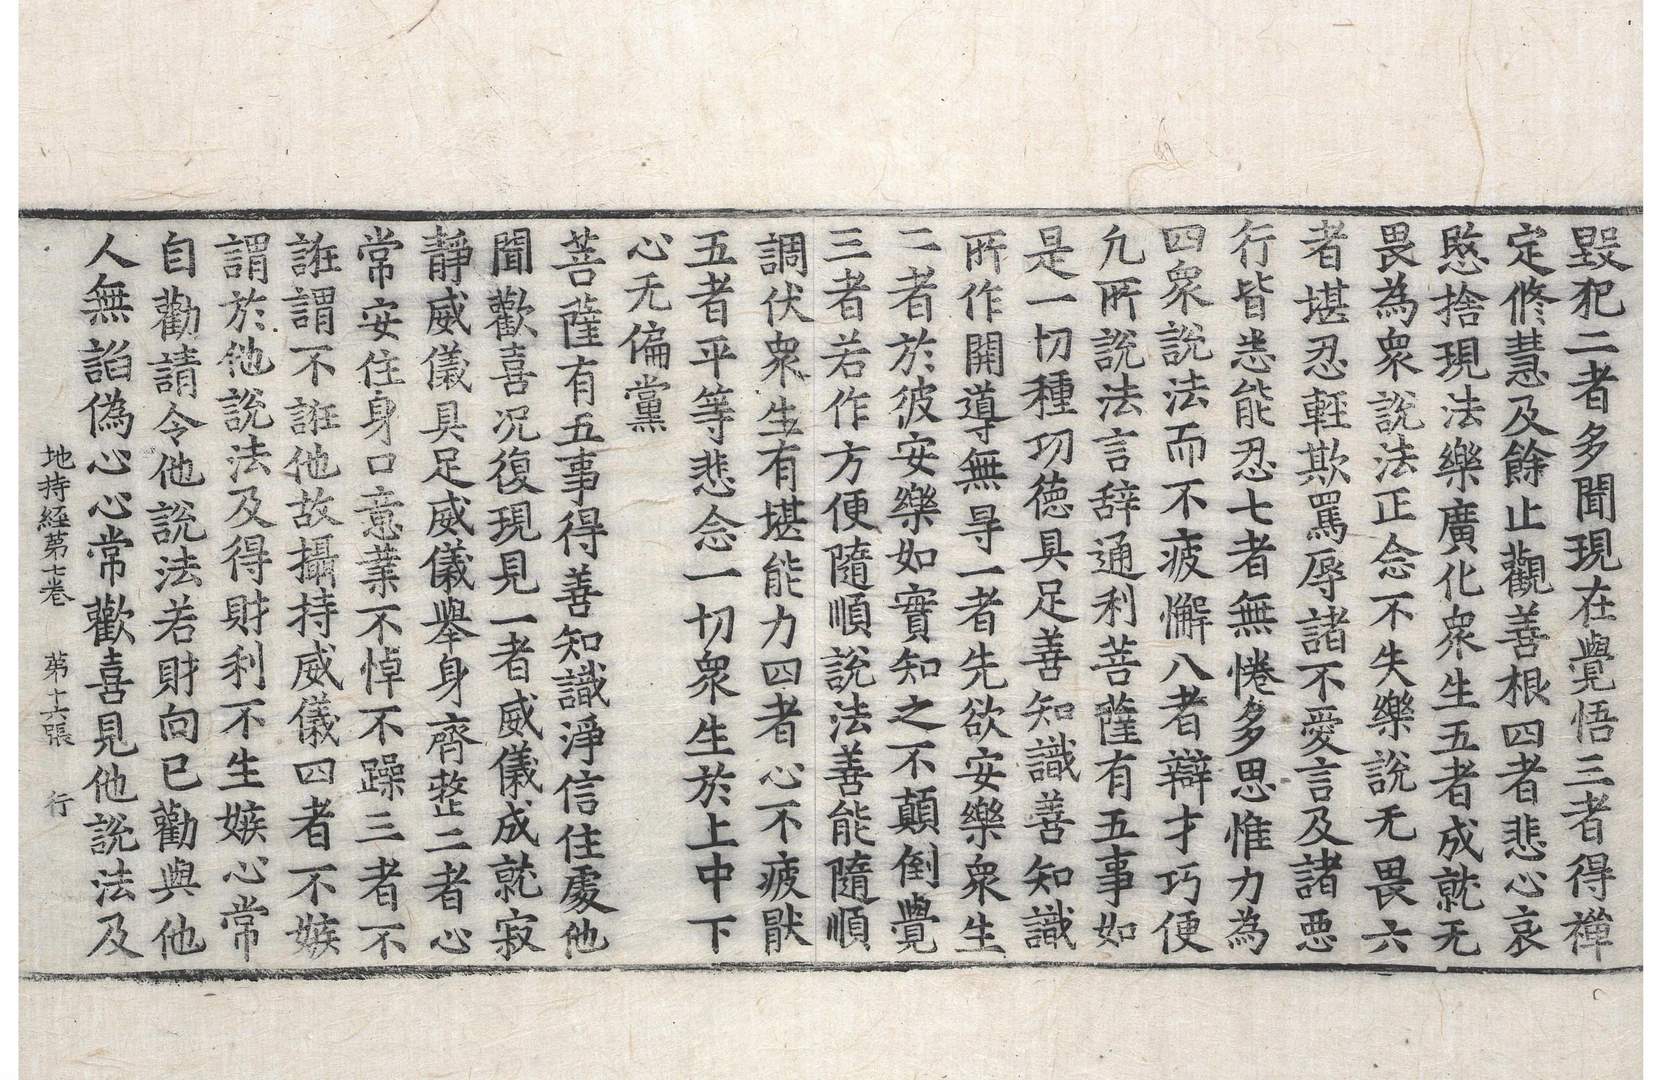 毀犯二者多聞現在覺悟三者得禪
定修慧及餘止觀善根四者悲心哀
愍捨現法樂廣化衆生五者成就无
畏為衆說法正念不失樂說无畏六
者堪忍輕欺罵辱諸不愛言及諸惡
行皆悉能忍七者無惓多思惟力為
四衆說法而不疲懈八者辯才巧便
凢所說法言辞通利菩薩有五事如
是一切種功德具足善知識善知識
所作開導無㝵一者先欲安樂衆生
二者於彼安樂如實知之不顛倒覺
三者若作方便隨順說法善能隨順
調伏衆生有堪能力四者心不疲猒
五者平等悲念一切衆生於上中下
心无偏黨
菩薩有五事得善知識淨信住處他
聞歡喜况復現見一者威儀成就寂
靜威儀具足威儀舉身齊整二者心
常安住身口意業不悼不躁三者不
誑謂不誑他故攝持威儀四者不嫉
謂於他說法及得財利不生嫉心常
自勸請令他說法若財向已勸與他
人無諂偽心心常歡喜見他說法及
地持經第七卷 第十六張 行